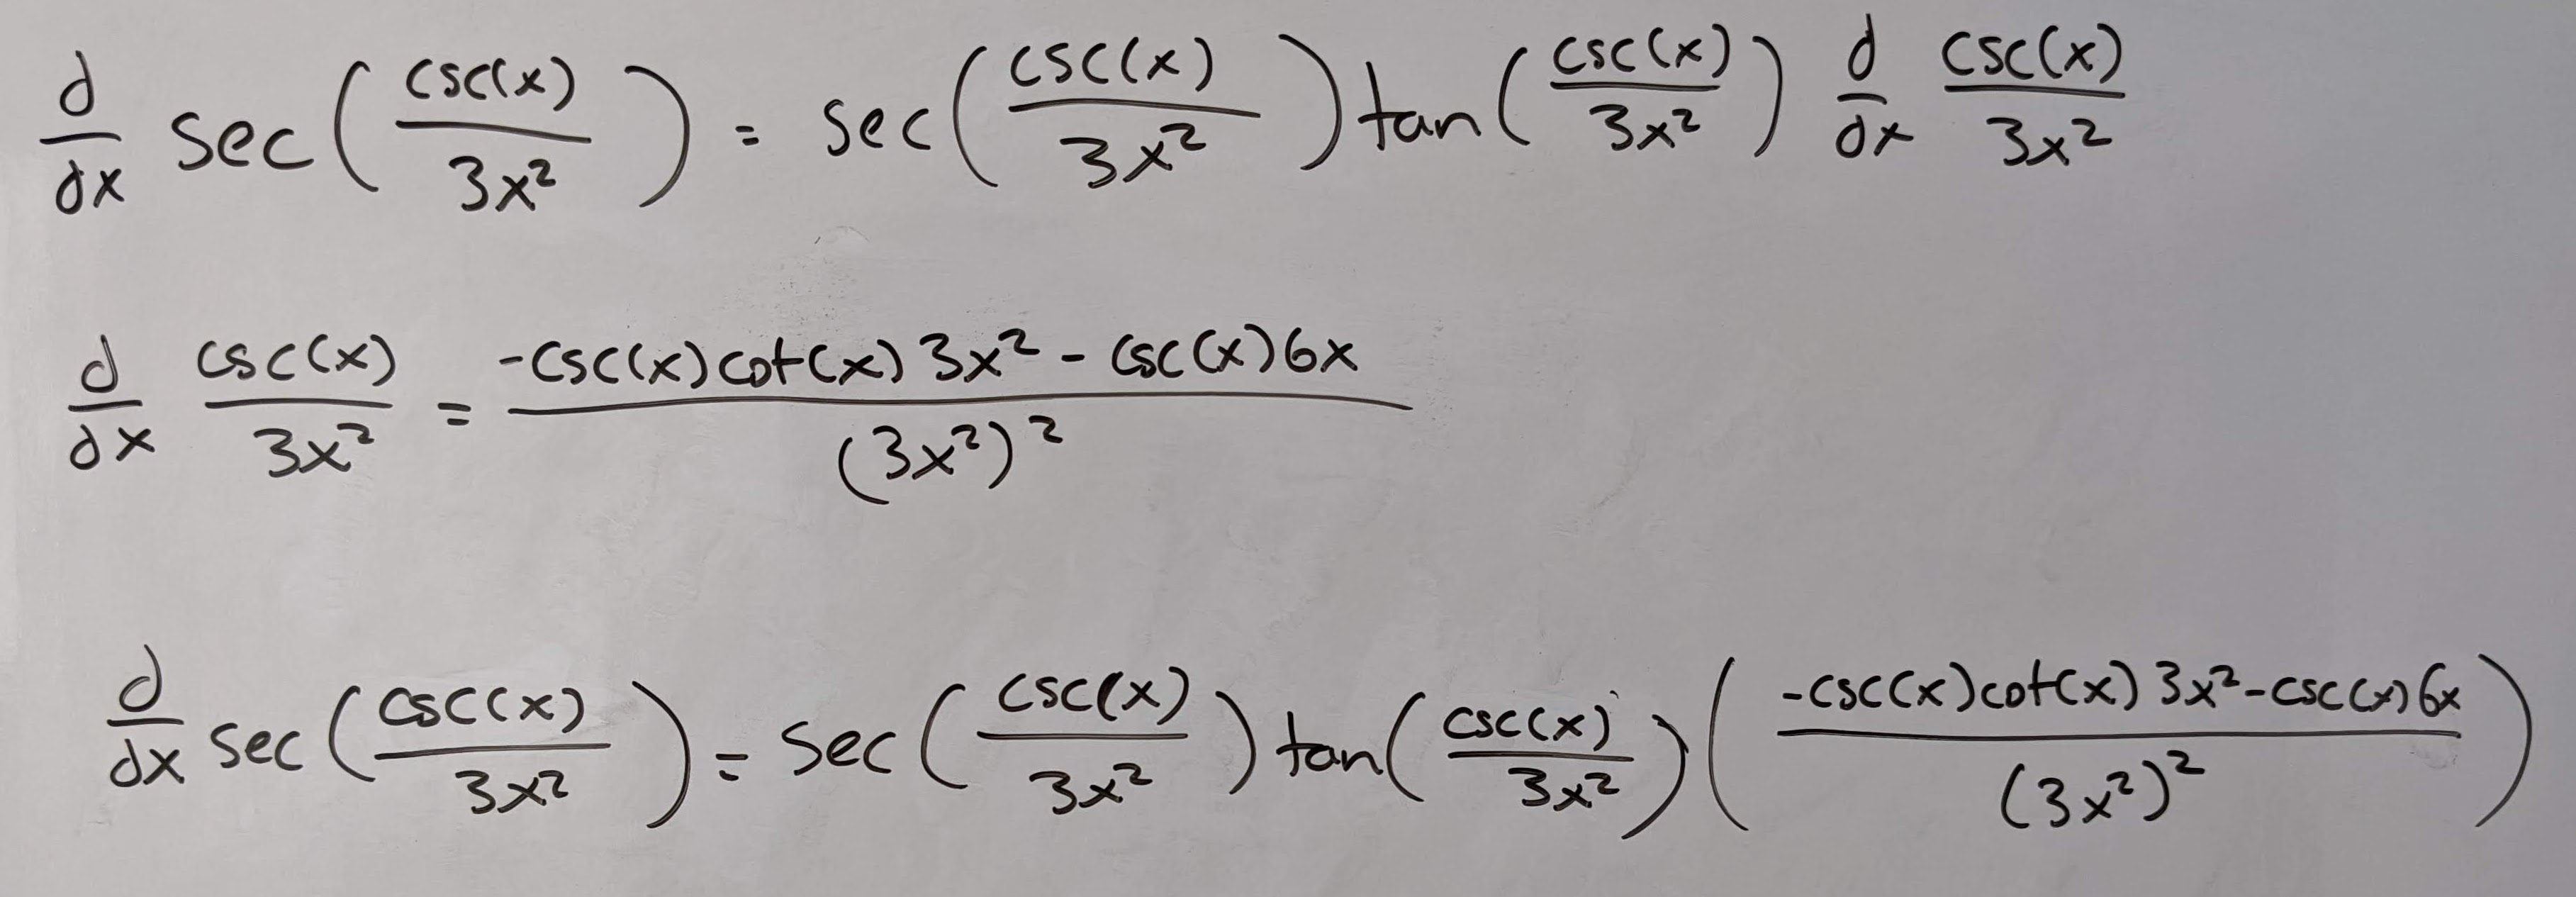 d/dx sec(csc(x)/3x²) = sec(csc(x)/3x²)tan(csc(x)/3x²) d/dx csc(x)/3x²
d/dx csc(x)/3x² = -csc(x)cot(x)3x² - csc(x)6x/(3x²)²
d/dx sec(csc(x)/3x²) = sec(csc(x)/3x²)tan(csc(x)/3x²)(-csc(x)cot(x)3x²-csc(x)6x/(3x²)²)